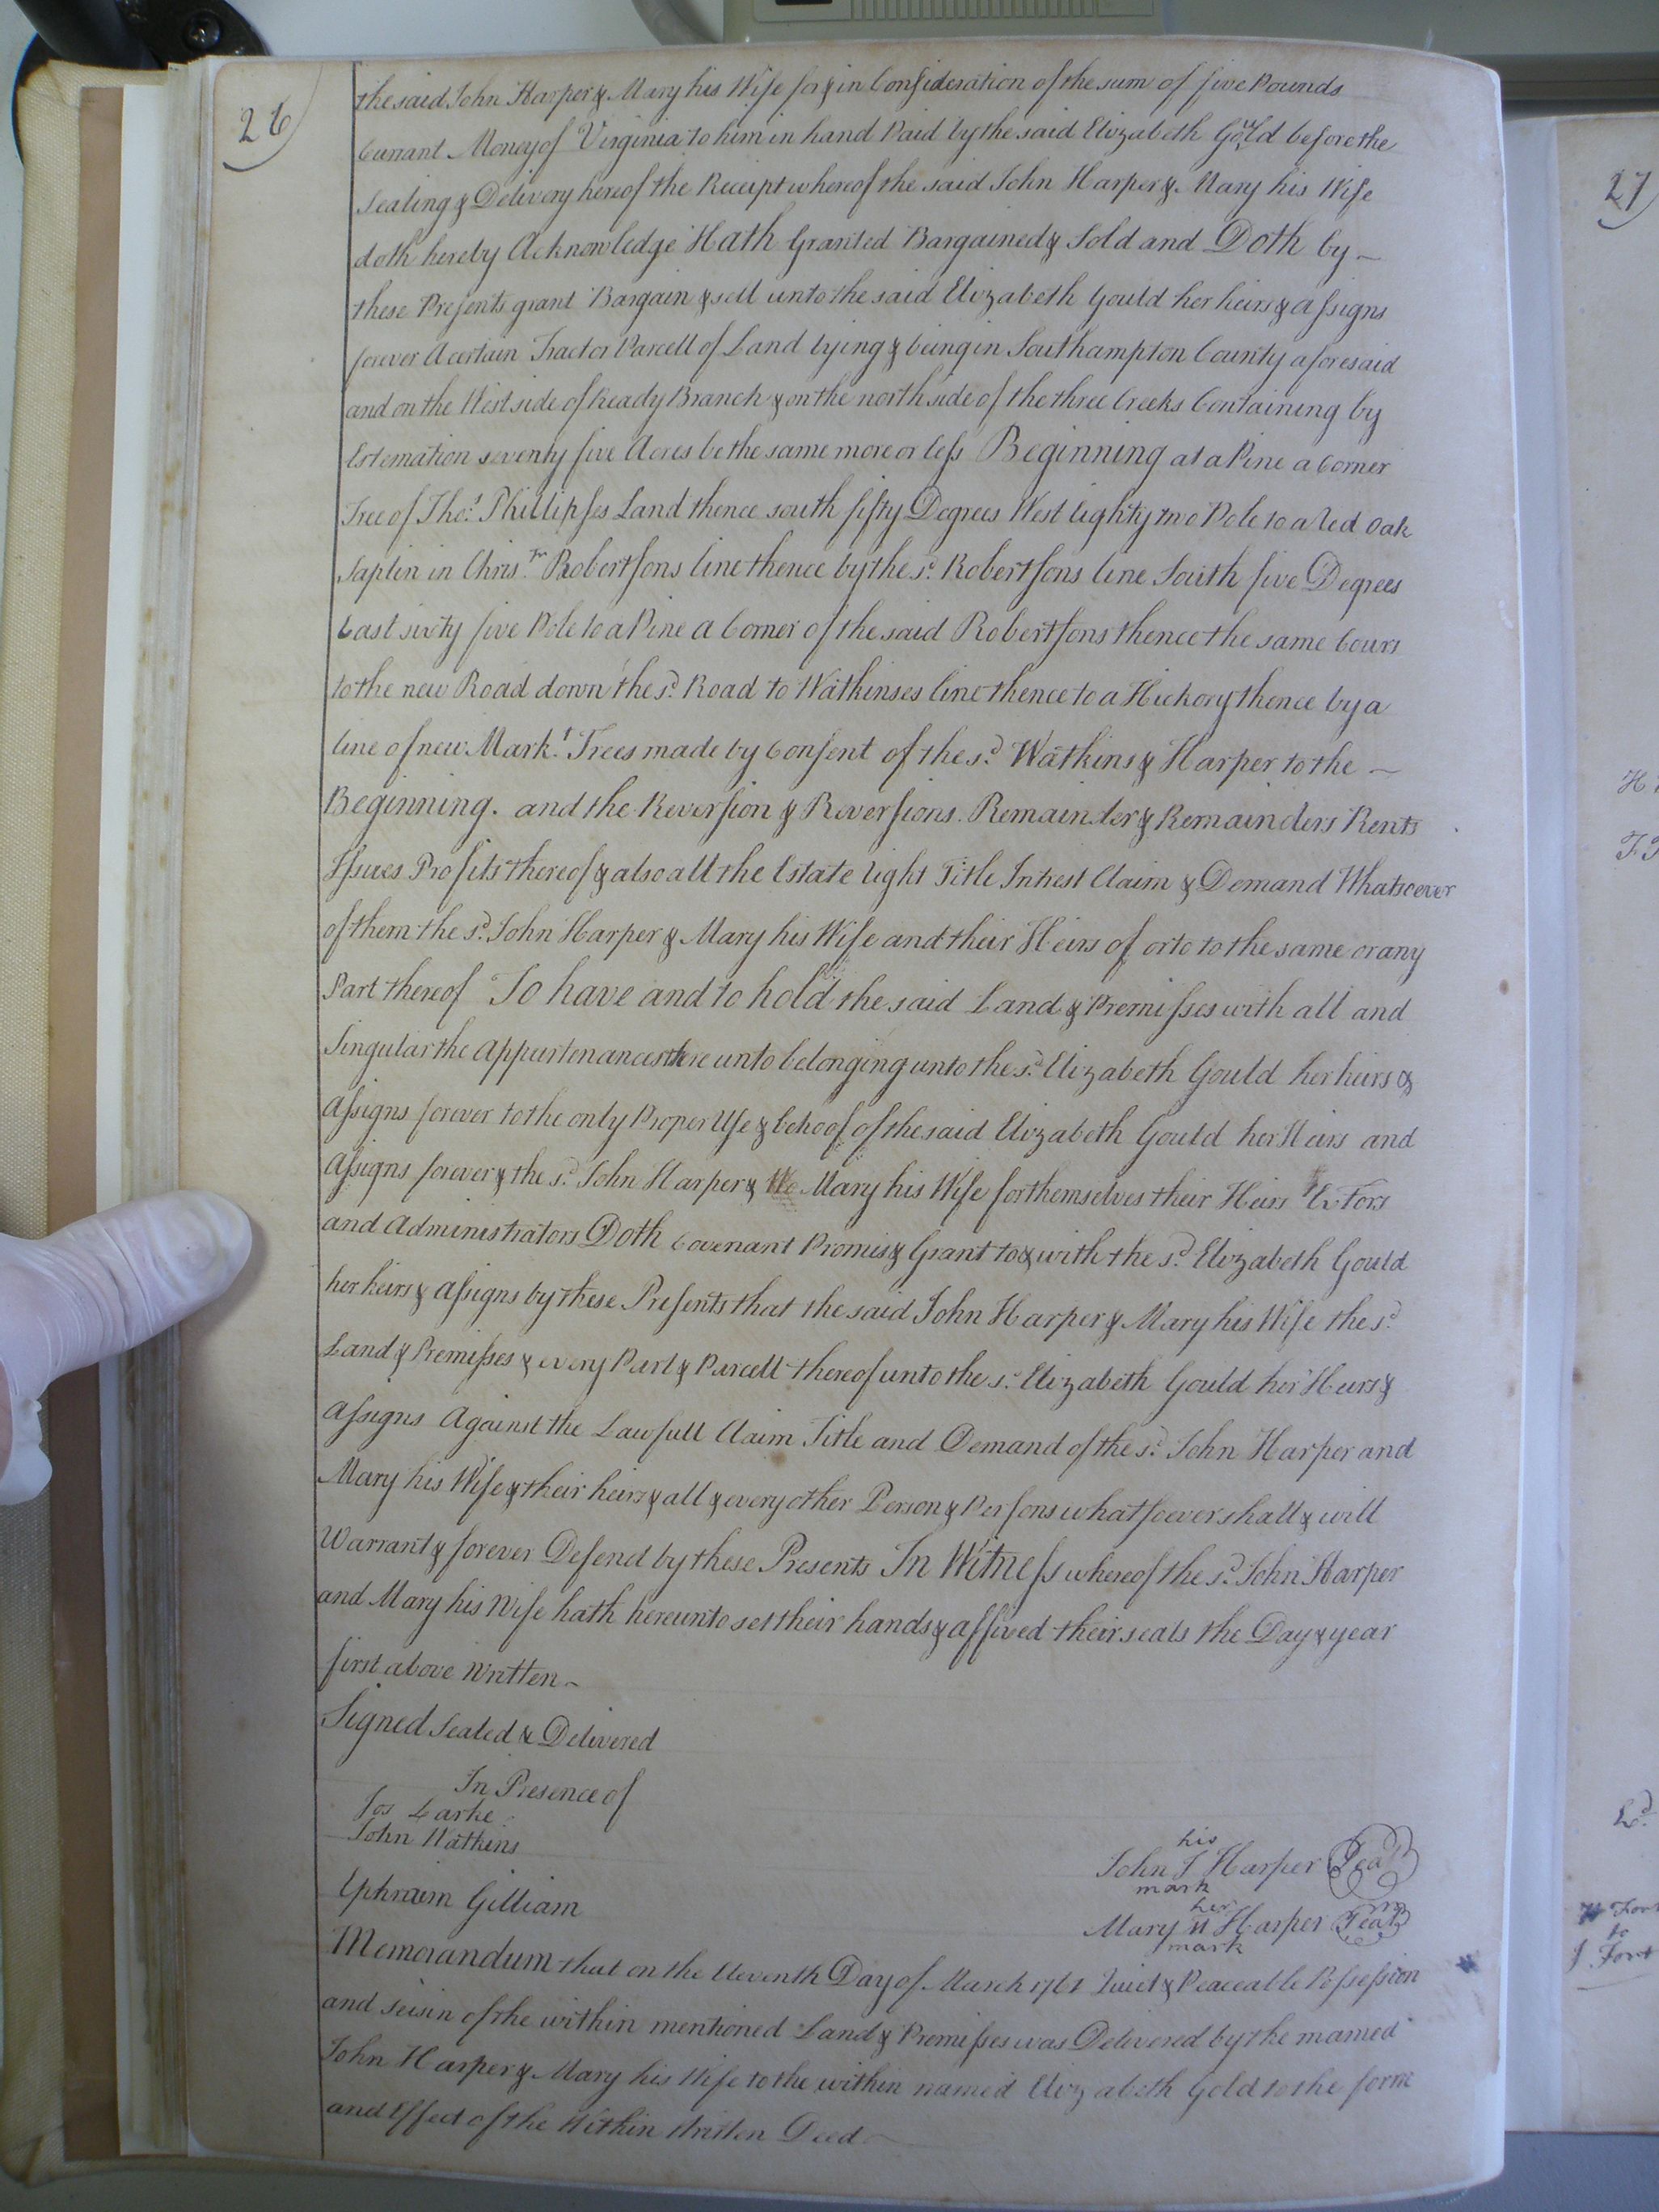 26)
the said John Harper & Mary his Wife for & in Consideration of the sum of five Pounds
Currant Money of Virginia to him in hand Paid by the said Elizabeth Gould before the
sealing & Delivery hereof the Receipt whereof the said John Harper & Mary his Wife
doth hereby Acknowledge Hath Granted Bargained & Sold and Doth by ~
these Presents grant Bargain & sell unto the said Elizabeth Gould her heirs & assigns
forever A certain Tract or Parcell of Land lying & being in Southampton County aforesaid
and on the West side of Ready Branch & on the north side of the three Creeks Containing by
Estemation seventy five Acres be the same more or less Beginning at a Pine a Corner
Tree of Thos. Phillipses Land thence south fifty Degrees West Eighty two Pole to a Red Oak
Saplin in Chrisr. Robertsons line thence by the sd. Robertsons line South five Degrees
East sixty five Pole to a Pine a Corner of the said Robertsons thence the same Cours
to the new Road down the sd. Road to Watkinses line thence to a Hickory thence by a
line of new Markt. Trees made by Consent of the sd. Watkins & Harper to the ~
Beginning. and the Reversion & Reversions. Remainder & Remainders Rents
Issues Profits thereof & also all the Estate Right Title Intrest Claim & Demand Whatsoever
of them the sd. John Harper & Mary his Wife and their Heirs of or to to the same or any
Part thereof To have and to hold the said Land & Premisses with all and
Singular the Appurtenances there unto belonging unto the sd. Elizabeth Gould her heirs &
Assigns forever to the only Proper Use & behoof of the said Elizabeth Gould her Heirs and
Assigns forever & the sd. John Harper & Mary his Wife for themselves their Heirs Extors
and Administrators Doth Covenant Promis & Grant to & with the sd. Elizabeth Gould
her heirs & assigns by these Presents that the said John Harper & Mary his Wife the sd.
Land & Premisses & every Part & Parcell thereof unto the sd. Elizabeth Gould her Heirs &
Assigns Against the Lawfull Claim Title and Demand of the sd. John Harper and
Mary his Wife & their heirs & all & every other Person & Persons whatsoever shall & will
Warrant & forever Defend by these Presents In Witness whereof the sd. John Harper
and Mary his Wife hath hereunto set their hands & affixed their seals the Day & year
first above Written ~
Signed Sealed & Delivered
In Presence of
Jos Larke
John Watkins
Ephraim Gilliam
his
John I Harper Seal
mark
her
Mary Harper Seal
mark
Memorandum that on the Eleventh Day of March 1761 Quiet & Peaceable Possession
and Seisin of the within mentioned Land & Premisses was Delivered by the mamed
John Harper & Mary his Wife to the within named Elizabeth Gold to the form
and Effect of the Within Written Deed ~
27)
H
Ed.
Fort
to
J Fort